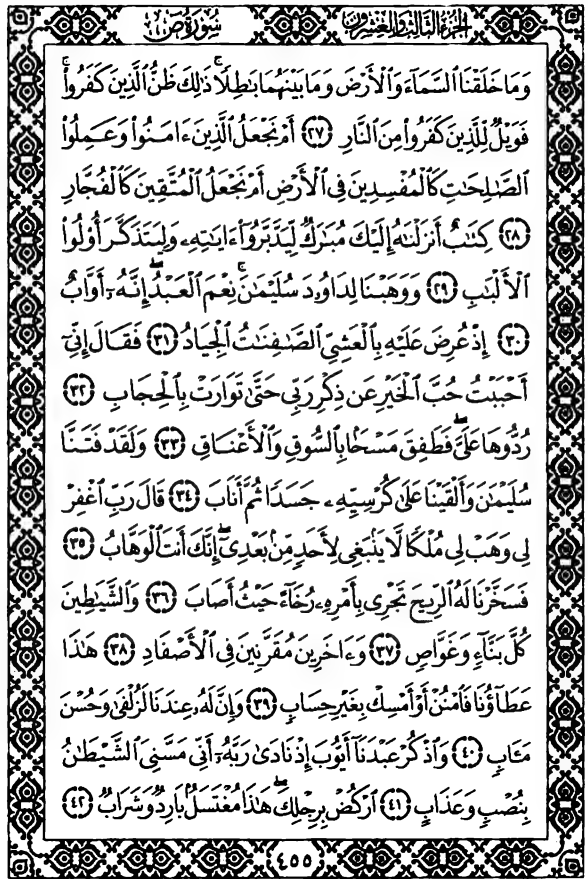 الجزء الثالث والعشرون سُورَةُ صٓ
وَمَا خَلَقْنَا ٱلسَّمَآءَ وَٱلْأَرْضَ وَمَا بَيْنَهُمَا بَٰطِلًا ۚ ذَٰلِكَ ظَنُّ ٱلَّذِينَ كَفَرُوا۟ ۚ
فَوَيْلٌ لِّلَّذِينَ كَفَرُوا۟ مِنَ ٱلنَّارِ ٢٧ أَمْ نَجْعَلُ ٱلَّذِينَ ءَامَنُوا۟ وَعَمِلُوا۟
ٱلصَّٰلِحَٰتِ كَٱلْمُفْسِدِينَ فِى ٱلْأَرْضِ أَمْ نَجْعَلُ ٱلْمُتَّقِينَ كَٱلْفُجَّارِ
٢٨ كِتَٰبٌ أَنزَلْنَٰهُ إِلَيْكَ مُبَٰرَكٌ لِّيَدَّبَّرُوٓا۟ ءَايَٰتِهِۦ وَلِيَتَذَكَّرَ أُو۟لُوا۟
ٱلْأَلْبَٰبِ ٢٩ وَوَهَبْنَا لِدَاوُۥدَ سُلَيْمَٰنَ ۚ نِعْمَ ٱلْعَبْدُ ۖ إِنَّهُۥٓ أَوَّابٌ
٣٠ إِذْ عُرِضَ عَلَيْهِ بِٱلْعَشِىِّ ٱلصَّٰفِنَٰتُ ٱلْجِيَادُ ٣١ فَقَالَ إِنِّىٓ
أَحْبَبْتُ حُبَّ ٱلْخَيْرِ عَن ذِكْرِ رَبِّى حَتَّىٰ تَوَارَتْ بِٱلْحِجَابِ ٣٢
رُدُّوهَا عَلَىَّ ۖ فَطَفِقَ مَسْحًۢا بِٱلسُّوقِ وَٱلْأَعْنَاقِ ٣٣ وَلَقَدْ فَتَنَّا
سُلَيْمَٰنَ وَأَلْقَيْنَا عَلَىٰ كُرْسِيِّهِۦ جَسَدًا ثُمَّ أَنَابَ ٣٤ قَالَ رَبِّ ٱغْفِرْ
لِى وَهَبْ لِى مُلْكًا لَّا يَنۢبَغِى لِأَحَدٍ مِّنۢ بَعْدِىٓ ۖ إِنَّكَ أَنتَ ٱلْوَهَّابُ ٣٥
فَسَخَّرْنَا لَهُ ٱلرِّيحَ تَجْرِى بِأَمْرِهِۦ رُخَآءً حَيْثُ أَصَابَ ٣٦ وَٱلشَّيَٰطِينَ
كُلَّ بَنَّآءٍ وَغَوَّاصٍ ٣٧ وَءَاخَرِينَ مُقَرَّنِينَ فِى ٱلْأَصْفَادِ ٣٨ هَٰذَا
عَطَآؤُنَا فَٱمْنُنْ أَوْ أَمْسِكْ بِغَيْرِ حِسَابٍ ٣٩ وَإِنَّ لَهُۥ عِندَنَا لَزُلْفَىٰ وَحُسْنَ
مَـَٔابٍ ٤٠ وَٱذْكُرْ عَبْدَنَآ أَيُّوبَ إِذْ نَادَىٰ رَبَّهُۥٓ أَنِّى مَسَّنِىَ ٱلشَّيْطَٰنُ
بِنُصْبٍ وَعَذَابٍ ٤١ ٱرْكُضْ بِرِجْلِكَ ۖ هَٰذَا مُغْتَسَلٌۢ بَارِدٌ وَشَرَابٌ ٤٢
٤٥٥